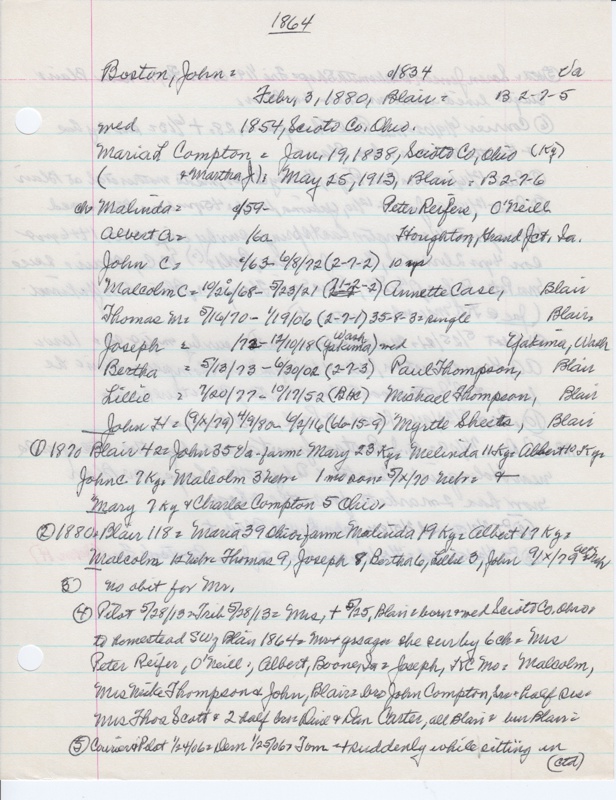 1864
Boston, John = 1834 Va
Febr, 3, 1880, Blair = B 2-7-5
med 1854, Scioto Co, Ohio.
Maria L Compton = Jan, 19, 1838, Scioto Co, Ohio (Ky)
( & Martha J) = May 25, 1913, Blair = B 2-7-6
ch = Malinda = /59 Peter Reifers, O'Neill
Albert A = 1860 Houghton, Grand Jct, Ia.
John C = /63 - 6/8/72 (2-7-2) 10
Malcolm C = 10/26/68 - 5/23/21 Annette Case, Blair
Thomas M = 5/16/70 - 1/19/06 (2-7-1) 35-8-3 = single Blair
Joseph = /72 - 12/10/18 (Yakima, Wash) med Yakima, Wash
Bertha = 5/13/73 - 6/30/02 (2-7-3) Paul Thompson, Blair
Lillie = 7/20/77 - 10/17/52 (Blk) Michael Thompson, Blair
John H = (9/x/79) 4/9/80 - 6/2/16 (66-15-9) Myrtle Sheets, Blair
① 1870 Blair 42 = John 35 Va - farm = Mary 23 Ky = Melinda 11 Ky = Albert 10 Ky =
John C 7 Ky = Malcolm 3 Nebr = 1 mo son = 5/x/70 Nebr = &
Mary 7 Ky & Charles Compton 5 Ohio.
② 1880 = Blair 118 = Maria 39 Ohio = farm = Malinda 19 Ky = Albert 17 Ky =
Malcolm 12 Nebr = Thomas 9, Joseph 8, Bertha 6, Lillie 3, John 9/x/79
③ no obit for Mr.
④ Pilot 5/28/13 = Trib 5/28/13 = Mrs, + 5/25, Blair = born & med Scioto Co. Ohio =
to homestead SW of Blair 1864 = Mr + yrs ago = she sur by 6 ch = Mrs
Peter Reifer, O'Neill; Albert, Boone, Ia = Joseph, KC Mo = Malcolm,
Mrs Mike Thompson & John, Blair = bro John Compton, & half sis =
Mrs Thos Scott & 2 half bro = David & Dan Carter, all Blair = bur Blair =
⑤ Courier & Pilot 1/24/06 = Dem 1/25/06 = Tom + suddenly while sitting in
(ctd)